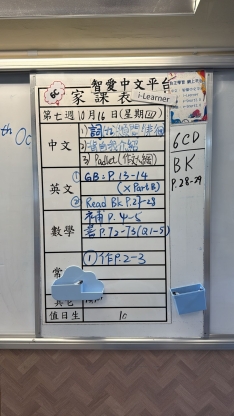 智愛中文平台
家課表
i-Learner
第七週10月16日(星期四)
中文
1)詞
2)
3) Padlet(作文大綱)
英文
① GB: P.13-14
(x Part B)
② Read Bk P.27-28
數學
補 P.4-5
書 P.72-73(Q1-5)
常
① 作P.2-3
值日生
10
6CD
BK
P.28-29
th Oc